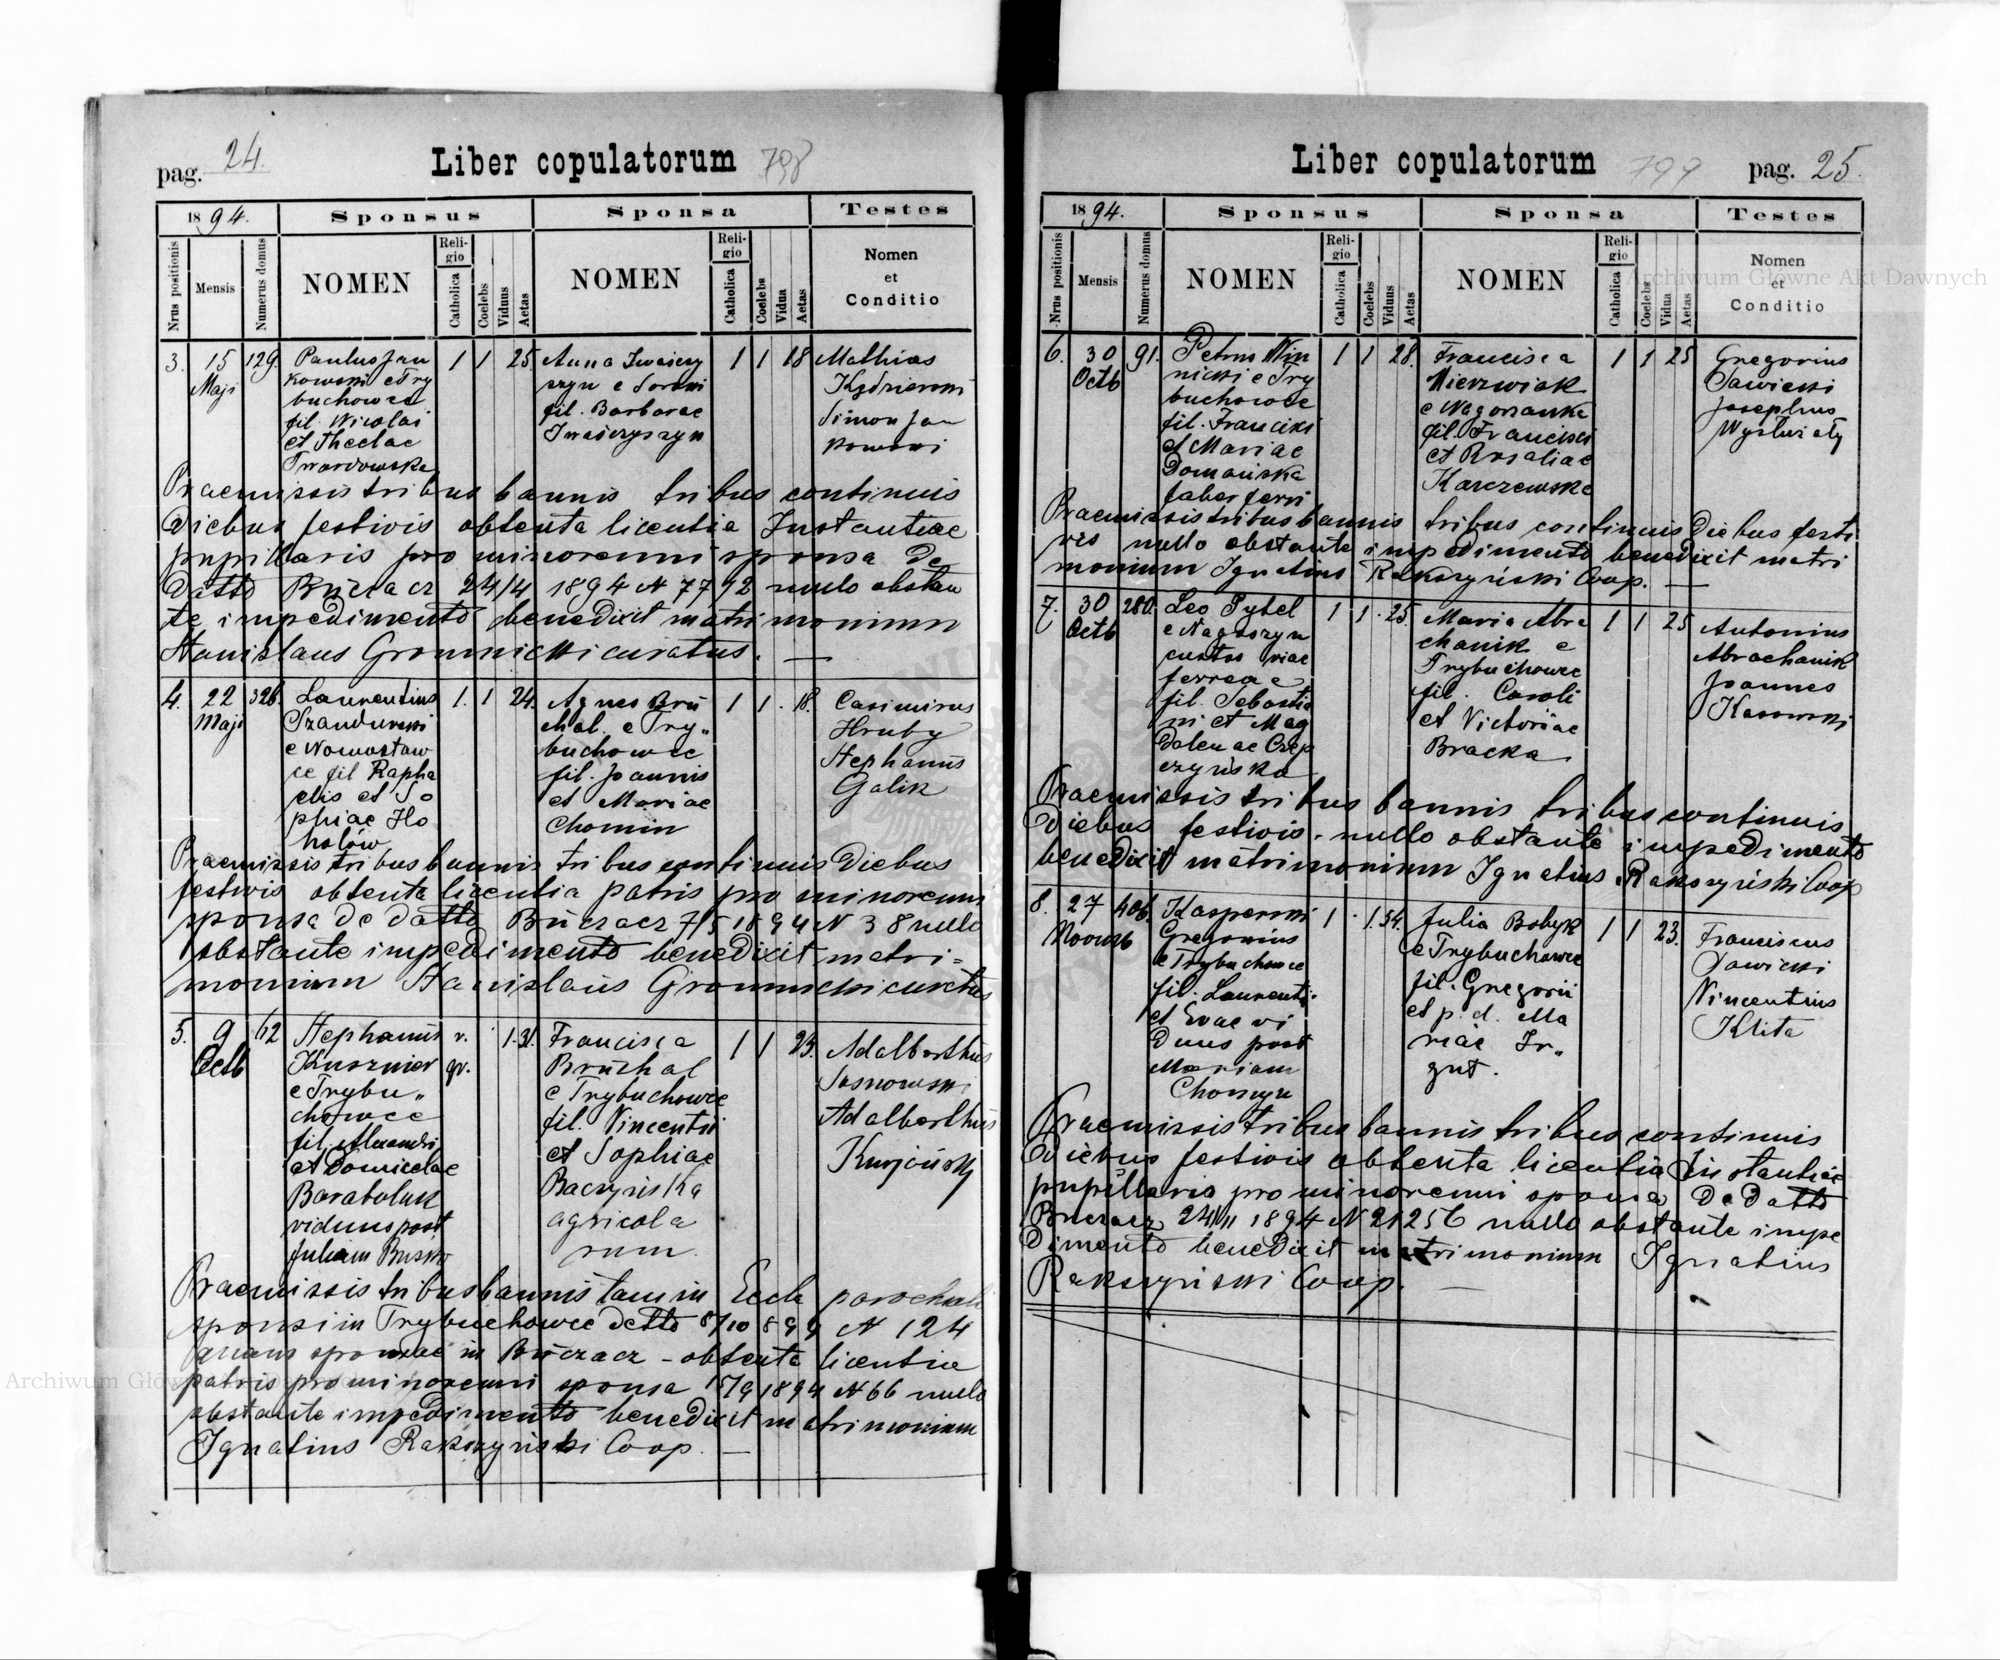 pag. 24.
Liber copulatorum 798
1894.
Sponsus
Sponsa
Testes
Nrus positionis
Mensis
Numerus domus
NOMEN
Religio
Catholica
Coelebs
Viduus
Aetas
NOMEN
Religio
Catholica
Coelebs
Vidua
Aetas
Nomen
et
Conditio
3. 15 Maji 129.
Paulus Jan
kowski e Try
buchowce
fil. Nicolai
et Theclae
Twardowska
1 1 25
Anna Iwaśczy
szyn e Soroki
fil. Barbarae
Iwaśczyszyn
1 1 18
Mathias
Kędzierski
Simon Jan
kowski
Praemissis tribus bannis tribus continuis
diebus festivis obtenta licentia Instantiae
pupillaris pro minorenni sponsa de
datto Buczacz 24/4 1894 N 7792 nullo obstan
te impedimento benedixit matrimonium
Stanislaus Gromnicki curatus. —
4. 22 Maji 326.
Laurentius
Szandurski
e Nowostaw
ce fil Rapha
elis et So
phiae Ho
holów
1. 1 24.
Agnes Bru
chal. e Try„
buchowce
fil. Joannis
et Mariae
Chomin
1 1. 18.
Casimirus
Hruby
Stephanus
Galik
Praemissis tribus bannis tribus continuis diebus
festivis obtenta licentia patris pro minorenni
sponsa de datto Buczacz 7/5 1894 N 38 nullo
obstante impedimento benedixit matri=
monium Stanislaus Gromnicki curatus
5. 9 Octb 112
Stephanus
Kusznier
e Trybu„
chowce
fil. Alexandri
et Domicelae
Baraboluk
viduus post
Juliam Busko
r. gr. 1. 31.
Francisca
Bruchal
e Trybuchowce
fil. Vincentii
et Sophiae
Baczyńska
agricola
rum.
1 1 23.
Adalberthus
Sosnowski
Adalberthus
Praemissis tribus bannis tam in Eccla parochiali
sponsi in Trybuchowce detto 8/10 899 N 124
quam sponsae in Buczacz - obtenta licentia
patris pro minorenni sponsa 15/9 1894 N 66 nullo
obstante impedimento benedixit matrimonium
Ignatius Rakszyński Coop. —
Liber copulatorum 799
pag. 25.
1894.
Sponsus
Sponsa
Testes
Nrus positionis
Mensis
Numerus domus
NOMEN
Religio
Catholica
Coelebs
Viduus
Aetas
NOMEN
Religio
Catholica
Coelebs
Vidua
Aetas
Nomen
et
Conditio
6. 30 Octb 91.
Petrus Win
nicki e Try
buchowce
fil. Francisci
et Mariae
Domańska
faber ferri
1 1 28.
Francisca
Mierzwiak
e Nagorzanka
fil. Francisci
et Rosaliae
Karczewska
1 1 25
Gregorius
Sawicki
Josephus
Praemissis tribus bannis tribus continuis diebus festi
vis nullo obstante impedimento benedixit matri
monium Ignatius Rakszyński Coop. —
7. 30 Octb 280.
Leo Pytel
custos viae
ferreae
fil. Sebastia
ni et Mag
dalenae Czep
czyńska
1 1. 25.
Maria Abra
chanik e
Trybuchowce
fil. Caroli
et Victoriae
Bracka.
1 1 25
Antonius
Abrachanik
Joannes
Kosowski
Praemissis tribus bannis tribus continuis
diebus festivis - nullo obstante impedimento
benedixit matrimonium Ignatius Rakszyński Coop
8. 27 Novemb 406.
Kasperski
Gregorius
e Trybuchowce
fil. Laurenti.
et Evae vi
duus post
Mariam
Chomyn
1 . 1. 34.
Julia Bobyk
e Trybuchowce
fil. Gregorii
et p. d. Ma
riae Ir„
gut.
1 1 23.
Franciscus
Sawicki
Vincentius
Klita
Praemissis tribus bannis tribus continuis
diebus festivis obtenta licentia Instantiae
pupillaris pro minorenni sponsa de datto
Buczacz 24/11 1894 N 21256 nullo obstante impe
dimento benedixit matrimonium Ignatius
Rakszyński Coop. —
Archiwum Główne Akt Dawnych
Archiwum Główne Akt Dawnych